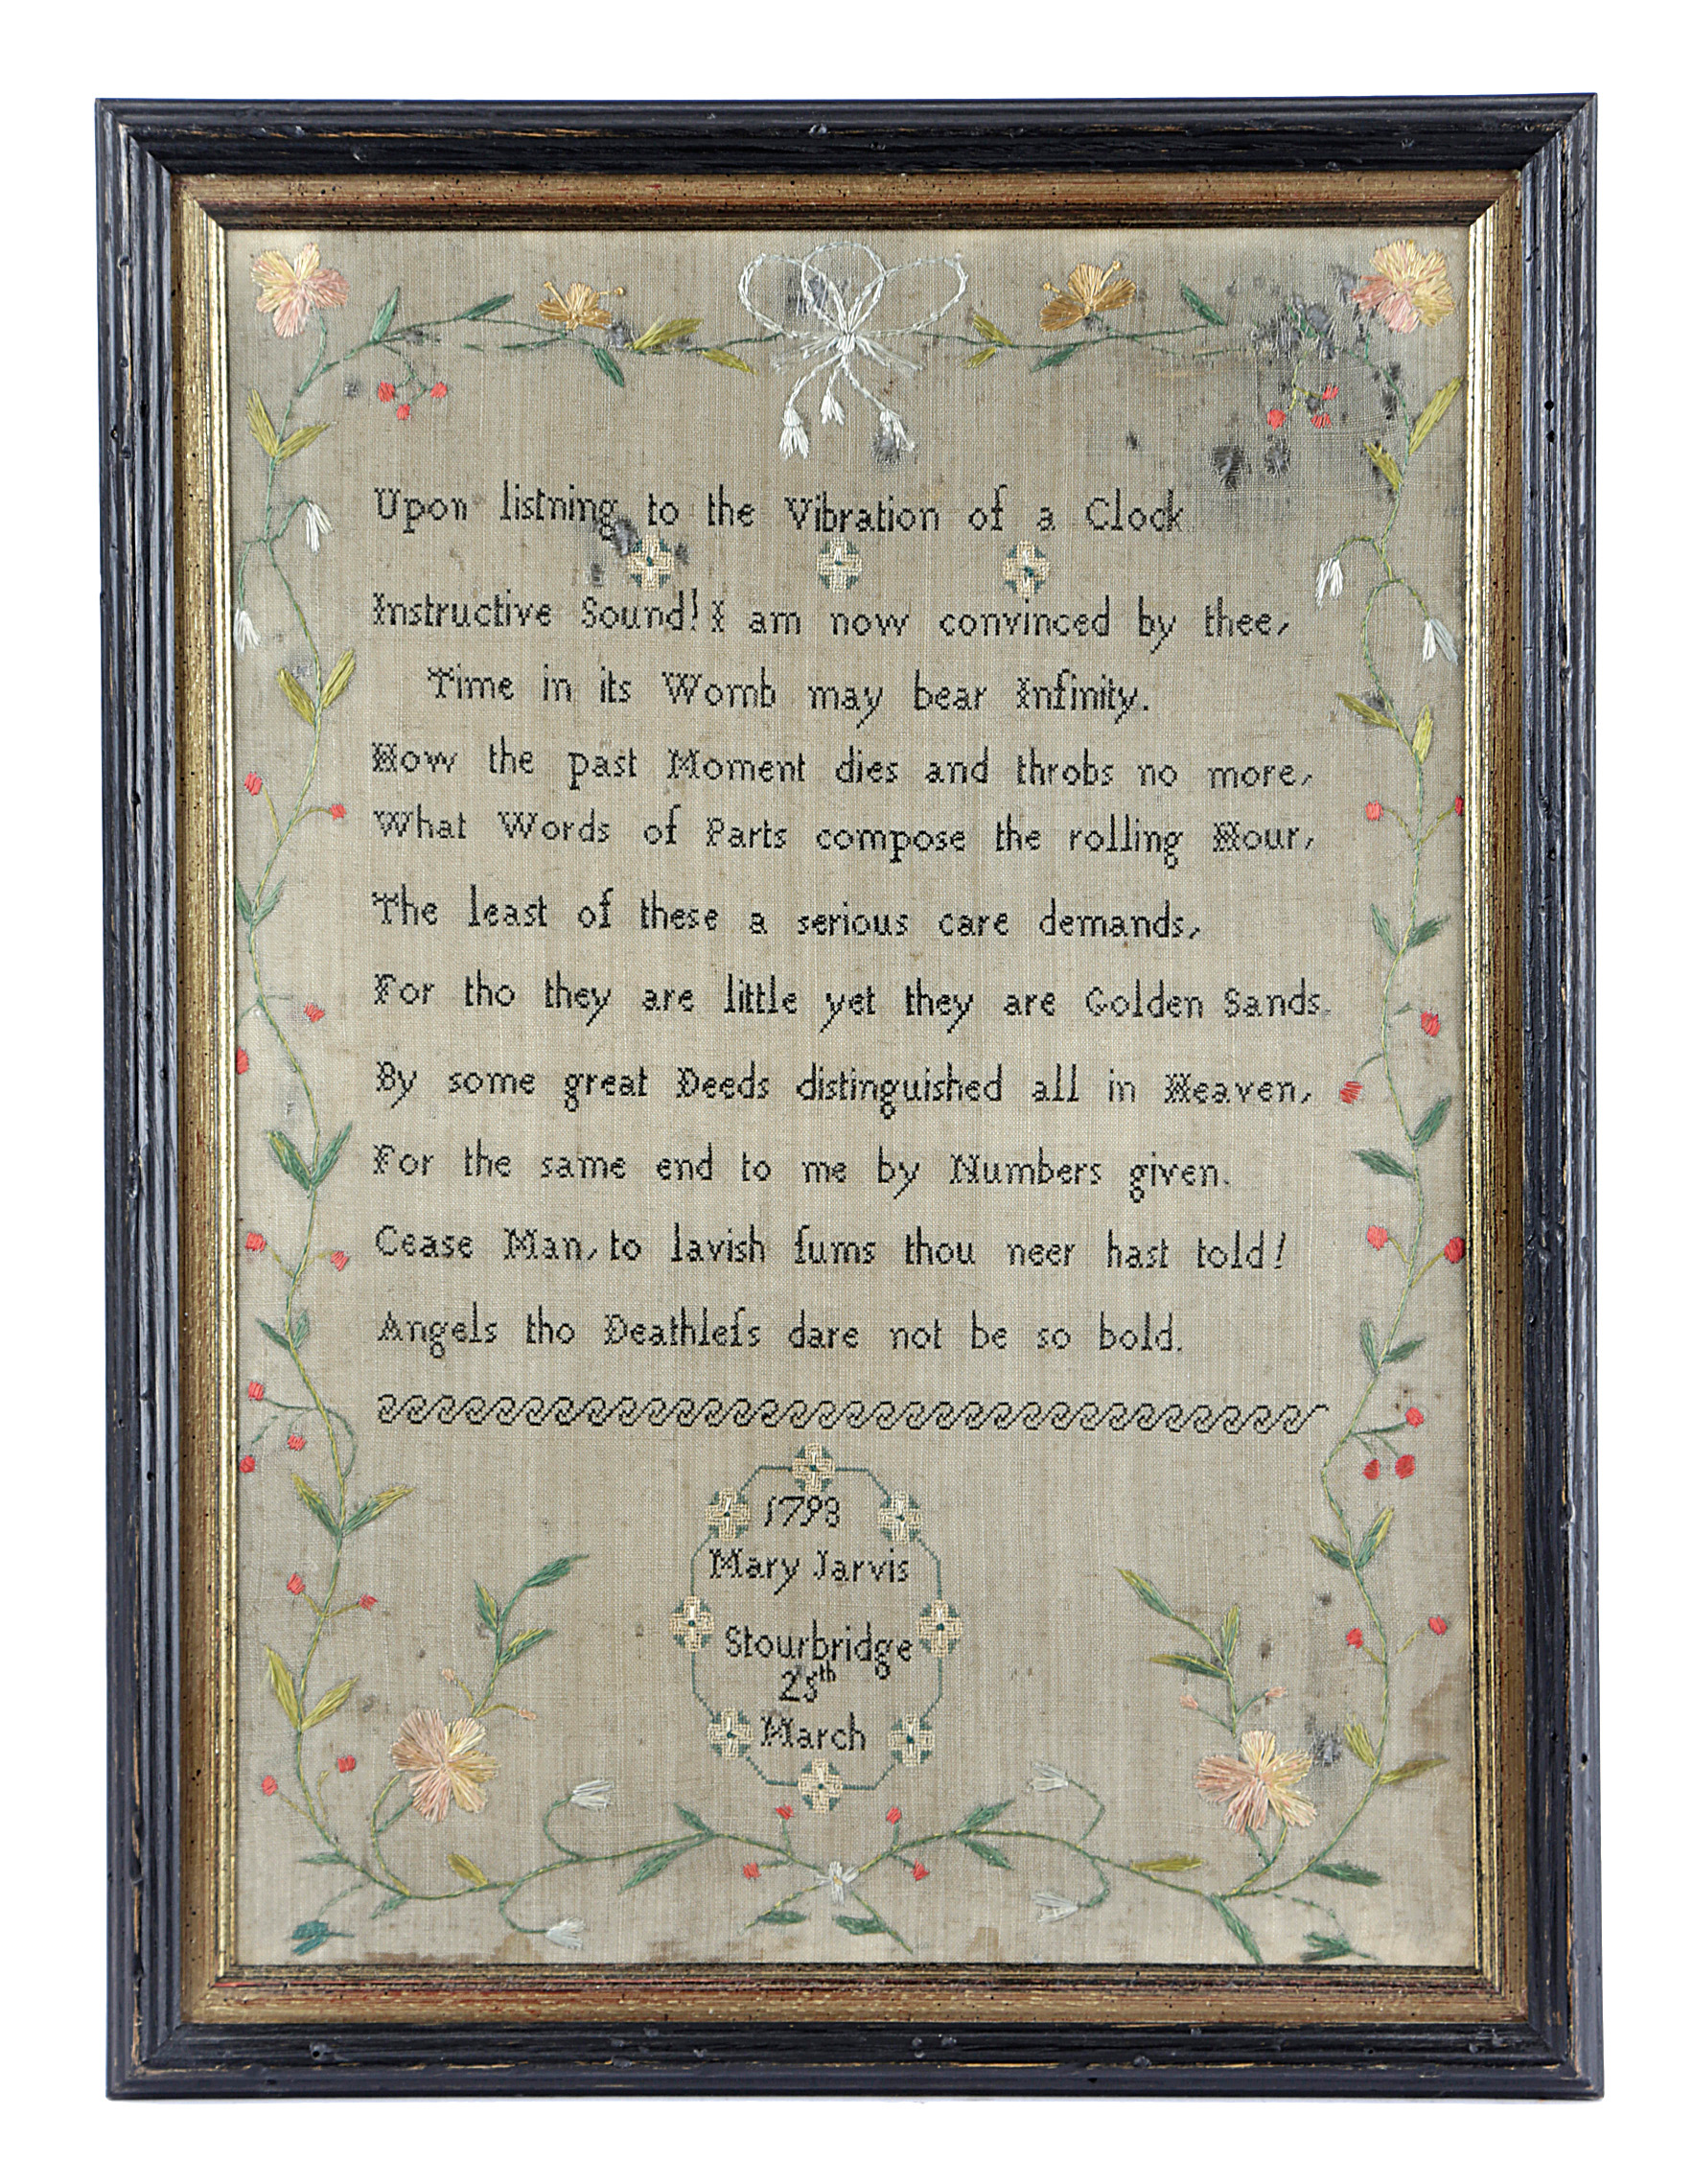 Upon listning to the Vibration of a Clock
Instructive Sound! I am now convinced by thee,
Time in its Womb may bear Infinity.
How the past Moment dies and throbs no more,
What Words of Parts compose the rolling Hour,
The least of these a serious care demands,
For tho they are little yet they are Golden Sands.
By some great Deeds distinguished all in Heaven,
For the same end to me by Numbers given.
Cease Man, to lavish ſums thou neer hast told!
Angels tho Deathleſs dare not be so bold.
1793
Mary Jarvis
Stourbridge
25th
March